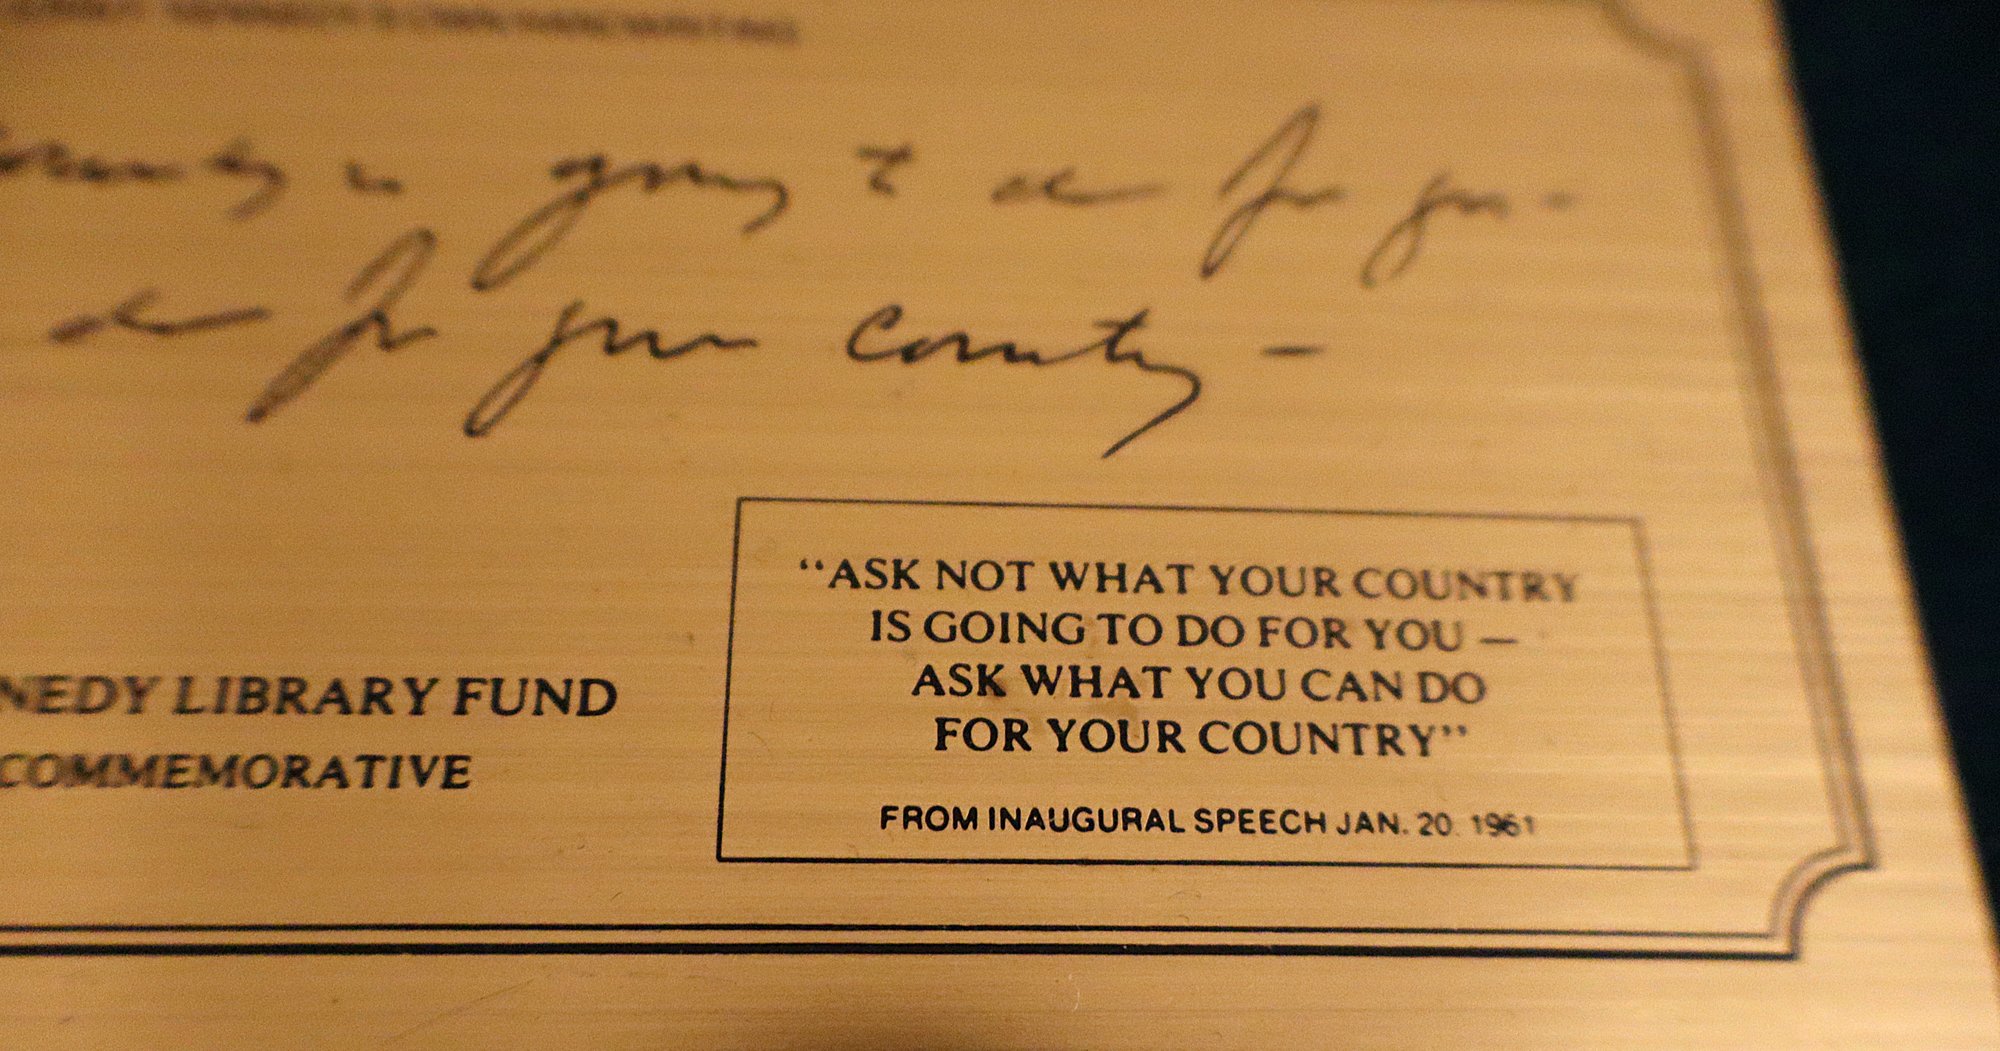 OWN HANDWRITING
country is going to do for you -
do for your country -
"ASK NOT WHAT YOUR COUNTRY
IS GOING TO DO FOR YOU —
ASK WHAT YOU CAN DO
FOR YOUR COUNTRY"
FROM INAUGURAL SPEECH JAN. 20. 1961
NEDY LIBRARY FUND
COMMEMORATIVE